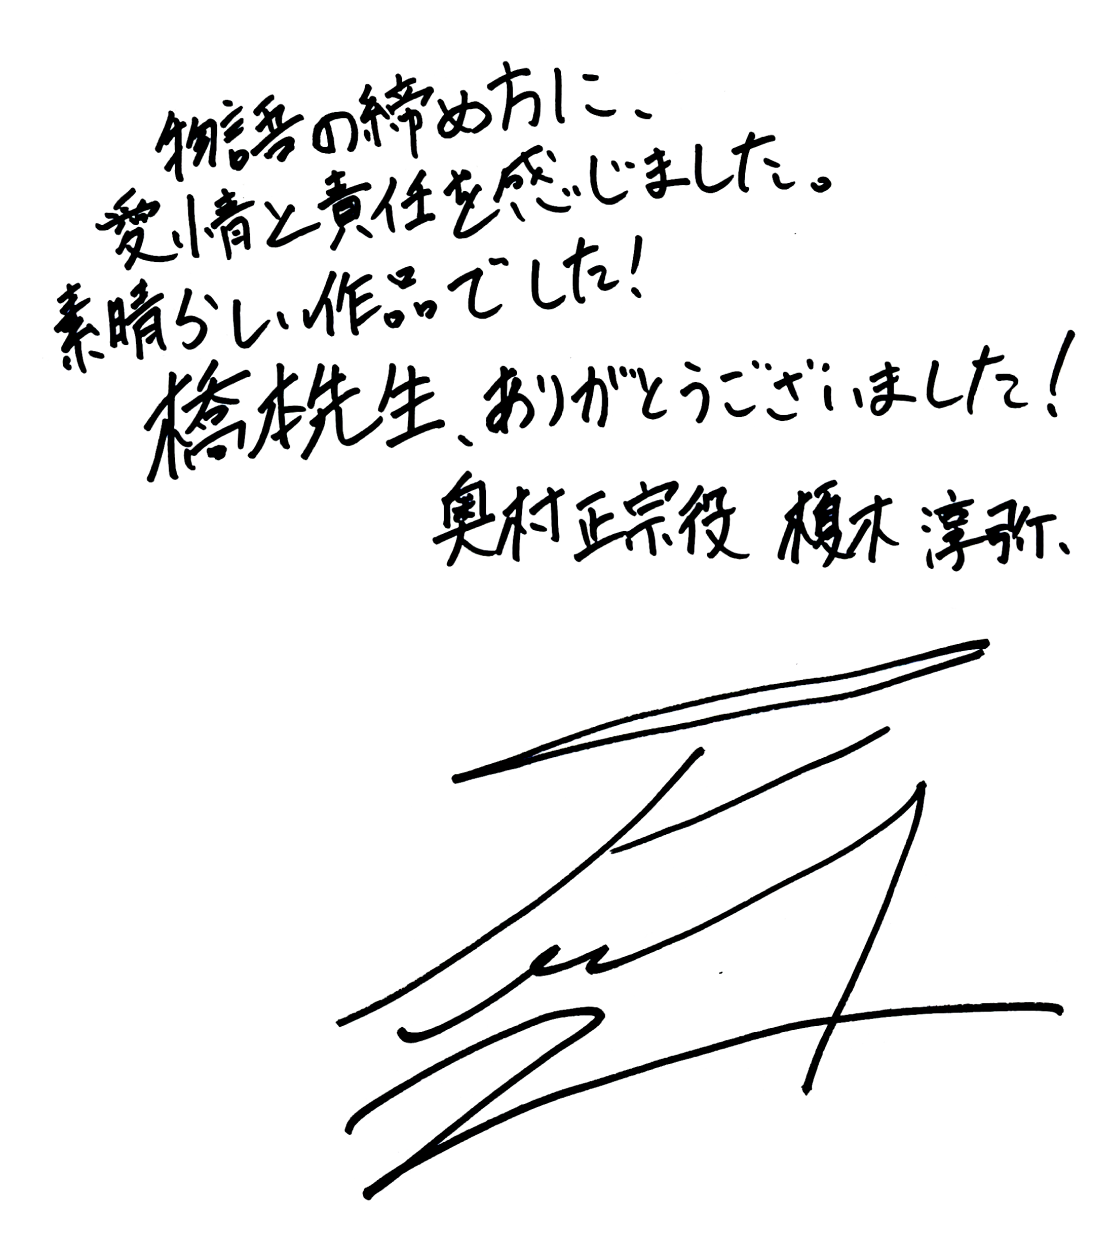 物語の締め方に、
愛情と責任を感じました。
素晴らしい作品でした!
橋本先生、ありがとうございました!
奥村正宗役 榎木淳弥、